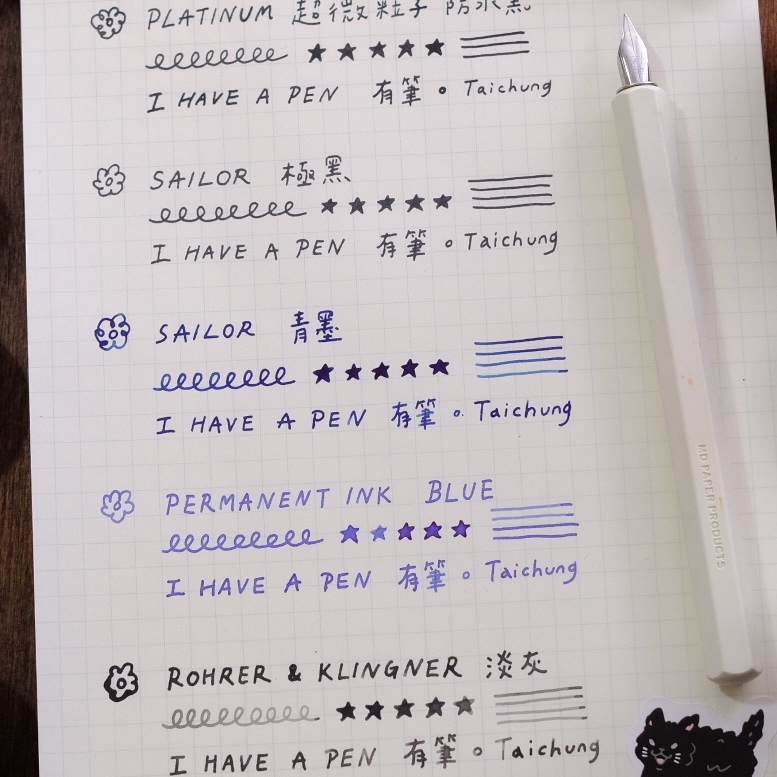 PLATINUM 超微粒子 防水黑
I HAVE A PEN 有筆。Taichung
SAILOR 極黑
I HAVE A PEN 有筆。Taichung
SAILOR 青墨
I HAVE A PEN 有筆。Taichung
PERMANENT INK BLUE
I HAVE A PEN 有筆。Taichung
ROHRER & KLINGNER 淡灰
I HAVE A PEN 有筆。Taichung
MD PAPER PRODUCTS